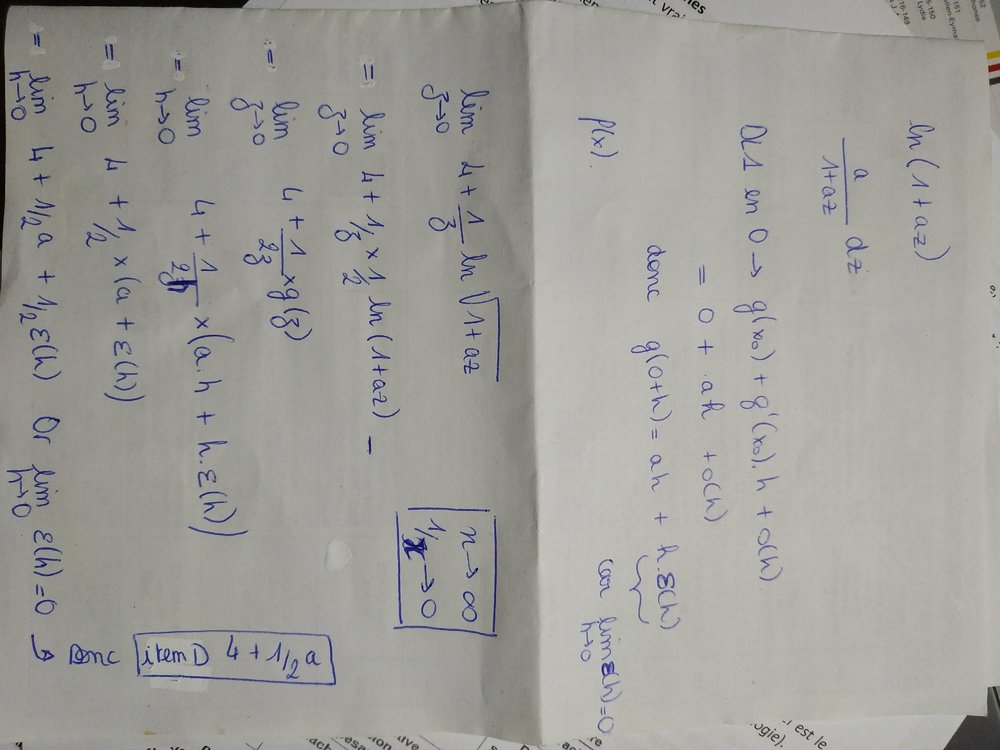 ln(1+az)
a/(1+az) dz
DL1 en 0 → g(x₀) + g'(x₀).h + o(h)
= 0 + ah + o(h)
donc g(0+h) = ah + h.ε(h)
car lim h→0 ε(h)=0
P(x).
lim z→0 4 + 1/z ln √(1+az)
n → ∞
1/x → 0
= lim z→0 4 + 1/z × 1/2 ln(1+az) –
= lim z→0 4 + 1/2z × g(z)
= lim h→0 4 + 1/2h × (a.h + h.ε(h))
= lim h→0 4 + 1/2 × (a + ε(h))
= lim h→0 4 + 1/2a + 1/2 ε(h) Or lim h→0 ε(h) = 0
↳ Donc item D 4 + 1/2 a